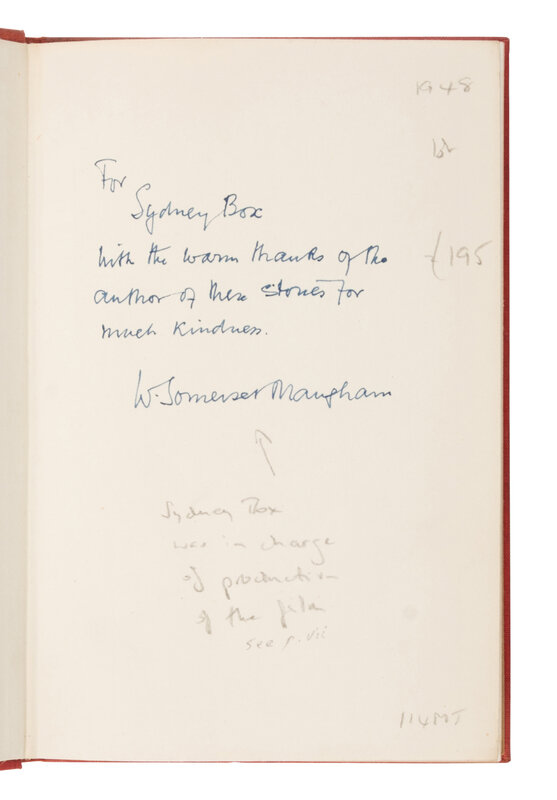 1948
For
Sydney Box
With the warm thanks of the
£195
author of these stories for
much kindness.
W. Somerset Maugham
Sydney Box
was in charge
of production
of the film
see p. vii